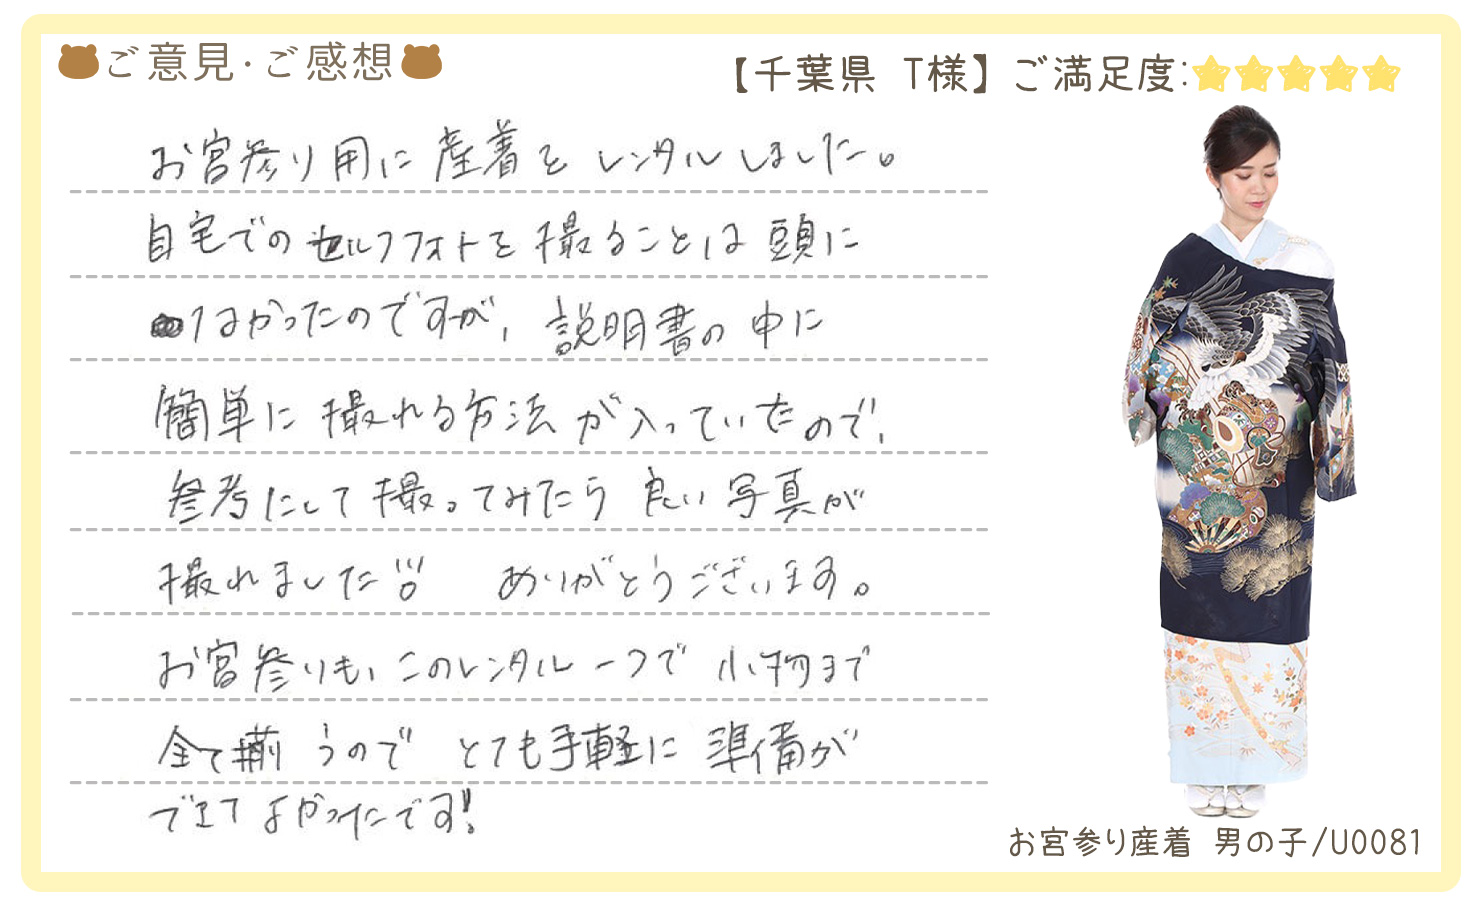 ご意見·ご感想
【千葉県 T様】ご満足度:
お宮参り用に産着をレンタルしました。
自宅でのセルフフォトを撮ることは頭に
なかったのですが、説明書の中に
簡単に撮れる方法が入っていたので、
参考にして撮ってみたら良い写真が
撮れました ありがとうございます。
お宮参りも、このレンタル一つで小物まで
全て揃うのでとても手軽に準備が
できてよかったです!
お宮参り産着 男の子/U0081